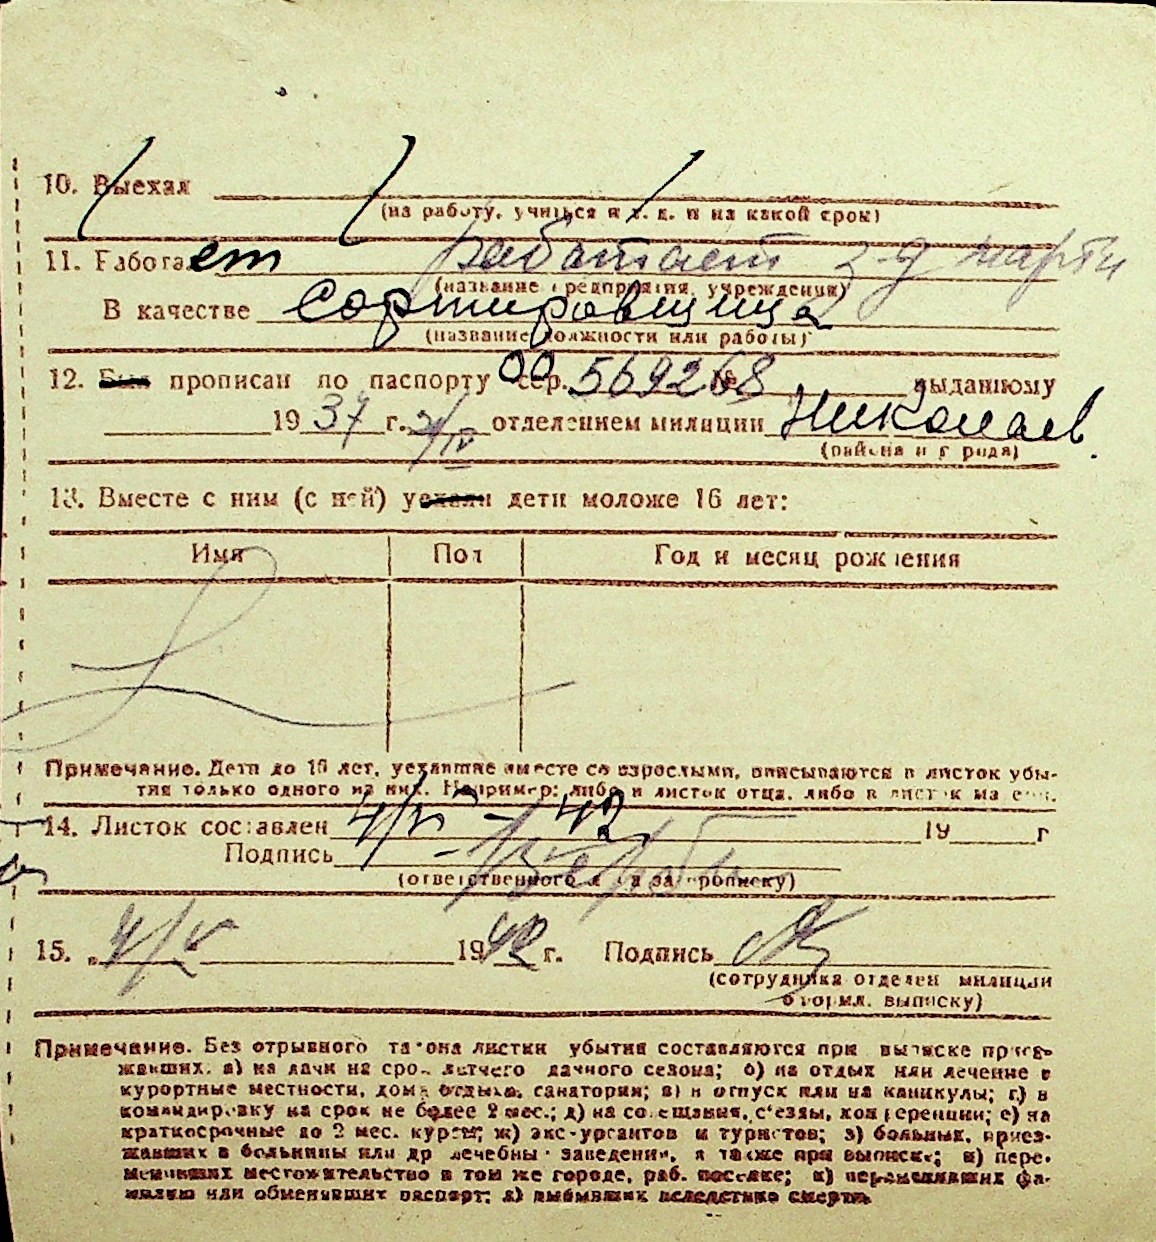 10. Выехал
(на работу, учиться и т. д. и на какой срок)
11. Работает работает
(название предприятия, учреждения)
В качестве сортировщица
(название должности или работы)
12. Был прописан по паспорту сер. 569268 № выданному
1937 г. отделением милиции Николаев
(района и города)
13. Вместе с ним (с ней) уехали дети моложе 16 лет:
Имя Пол Год и месяц рождения
Примечание. Дети до 16 лет, уехавшие вместе со взрослыми, вписываются в листок убы-
тия только одного из них. Например: либо в листок отца, либо в листок матери.
14. Листок составлен 4/V - 42 19 г
Подпись
(ответственного лица за прописку)
15. „ 4/V 1942 г. Подпись
(сотрудника отделен милиции
оформл. выписку)
Примечание. Без отрывного талона листки убытия составляются при выписке приез-
жавших: а) на дачи на срок летнего дачного сезона; б) на отдых или лечение в
курортные местности, дома отдыха, санатории; в) в отпуск или на каникулы; г) в
командировку на срок не более 2 мес.; д) на совещания, съезды, конференции; е) на
краткосрочные до 2 мес. курсы; ж) экскурсантов и туристов; з) больных, приез-
жавших в больницы или др лечебны заведения, а также при выписке; и) пере-
менивших местожительство в том же городе, раб. поселке; к) переменивших фа-
милию или обменявших паспорт; л) выбывших вследствие смерти